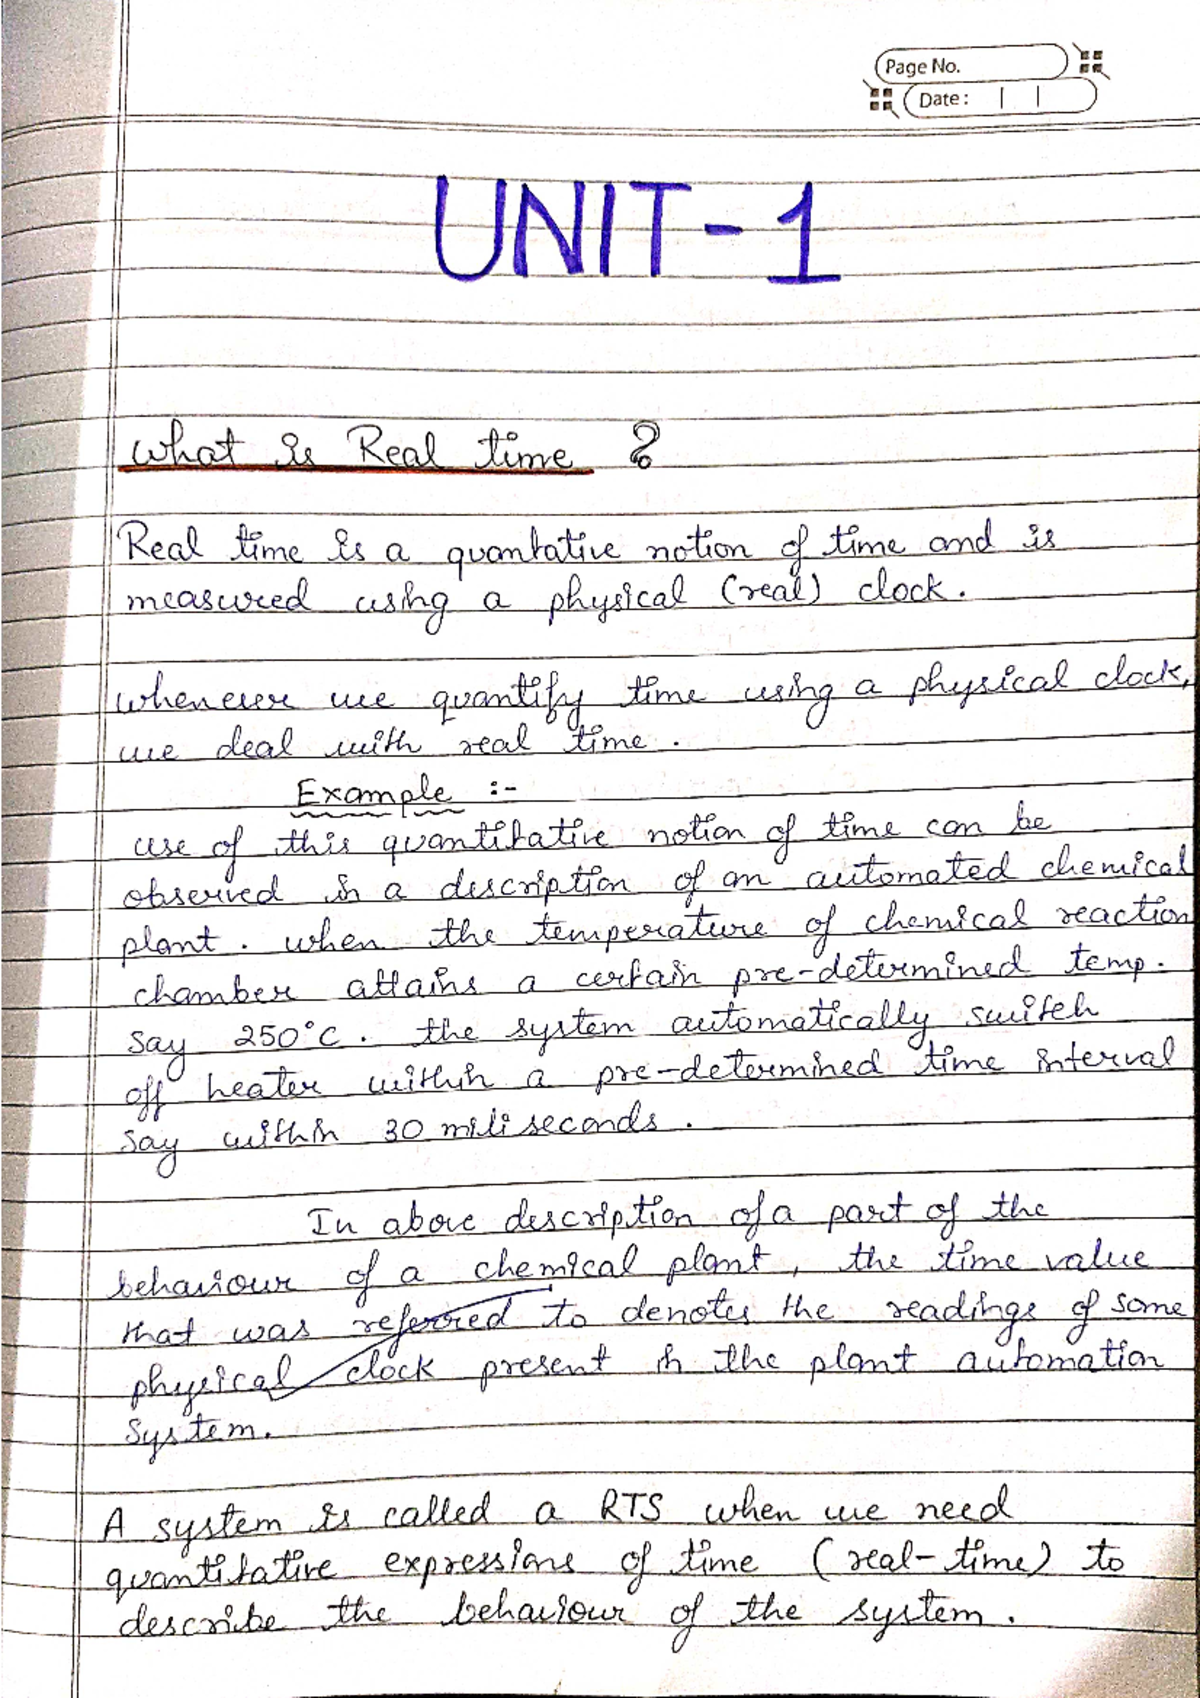 Page No.
Date :
UNIT-1
What is Real time ?
Real time is a quantative notion of time and is
measured using a physical (real) clock.
whenever we quantify time using a physical clock,
we deal with real time.
Example :-
use of this quantitative notion of time can be
observed in a description of an automated chemical
plant. when the temperature of chemical reaction
chamber attains a certain pre-determined temp.
say 250°C. the system automatically switch
off heater within a pre-determined time interval
say within 30 mili seconds.
In above description of a part of the
behaviour of a chemical plant, the time value
that was referred to denotes the readings of some
physical clock present in the plant automation
system.
A system is called a RTS when we need
quantitative expressions of time (real-time) to
describe the behaviour of the system.